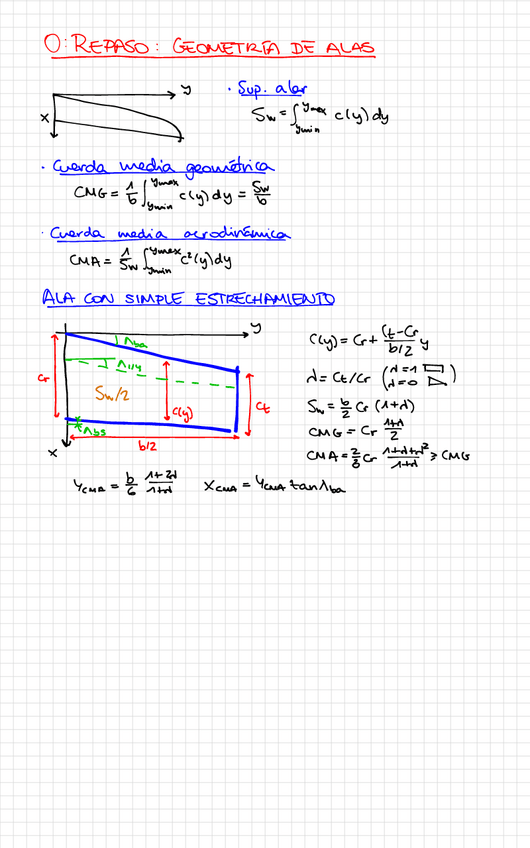 0: REPASO: GEOMETRÍA DE ALAS
y
x
· Sup. alar
Sw = ∫_{ymin}^{ymax} c(y) dy
· Cuerda media geométrica
CMG = 1/b ∫_{ymin}^{ymax} c(y) dy = Sw/b
· Cuerda media aerodinámica
CMA = 1/Sw ∫_{ymin}^{ymax} c²(y) dy
ALA CON SIMPLE ESTRECHAMIENTO
y
Λba
Λ1/4
Cr
Sw/2
c(y)
Ct
Λbs
b/2
x
C(y) = Cr + (Ct - Cr)/(b/2) y
λ = Ct/Cr (λ=1 λ=0)
Sw = b/2 Cr (1+λ)
CMG = Cr (1+λ)/2
CMA = 2/3 Cr (1+λ+λ²)/(1+λ) ≥ CMG
yCMA = b/6 (1+2λ)/(1+λ) xCMA = yCMA tan Λba